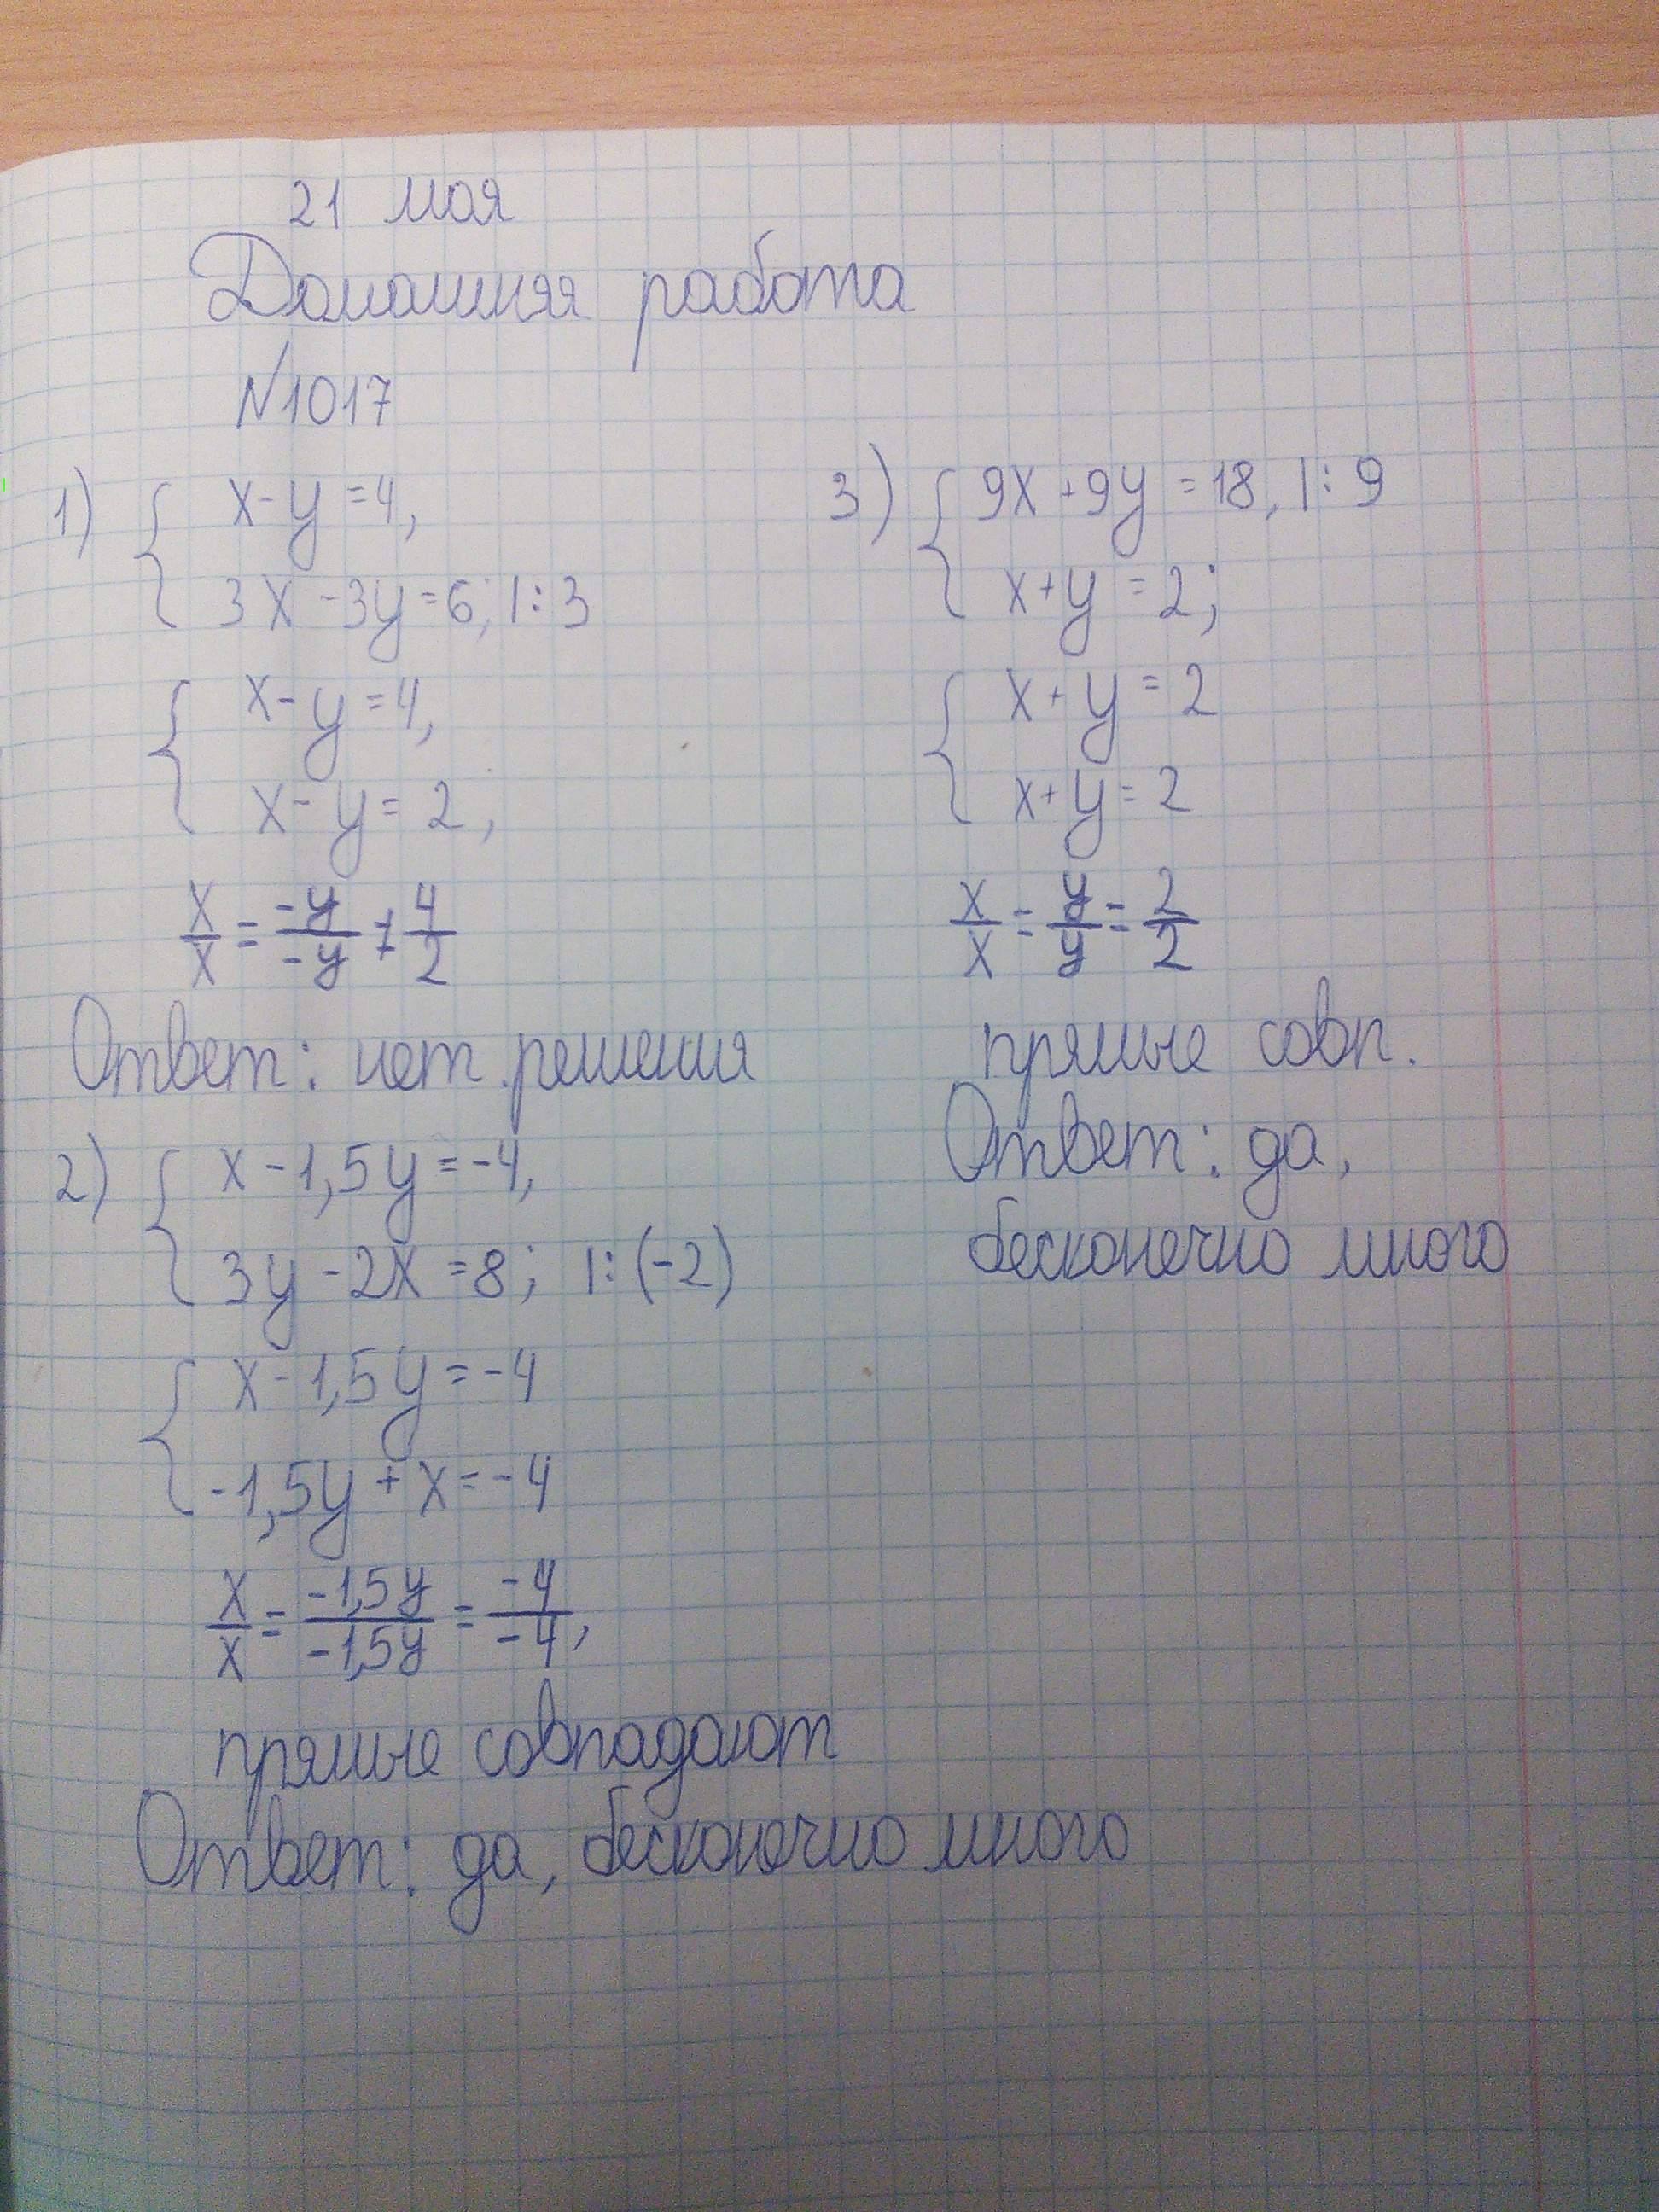 21 мая
Домашняя работа
№1017
1) { x-y=4,
3x-3y=6; |:3
{ x-y=4,
x-y=2;
x/x = -y/-y ≠ 4/2
Ответ: нет решения
2) { x-1,5y=-4,
3y-2x=8; |:(-2)
{ x-1,5y=-4
-1,5y+x=-4
x/x = -1,5y/-1,5y = -4/-4,
прямые совпадают
Ответ: да, бесконечно много
3) { 9x+9y=18, |:9
x+y=2;
{ x+y=2
x+y=2
x/x = y/y = 2/2
прямые совп.
Ответ: да,
бесконечно много